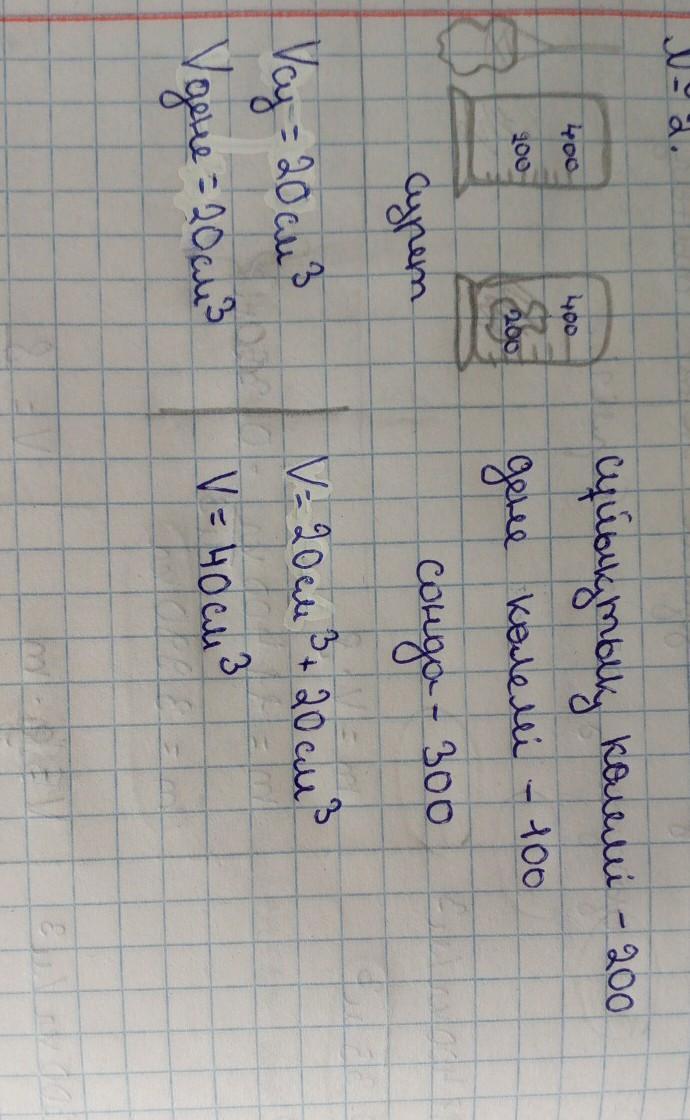 № 2.
400
200
400
200
сурет
сұйықтық көлемі - 200
дене көлемі - 100
сонда - 300
Vсу = 20 см³
Vдене = 20 см³
V = 20 см³ + 20 см³
V = 40 см³